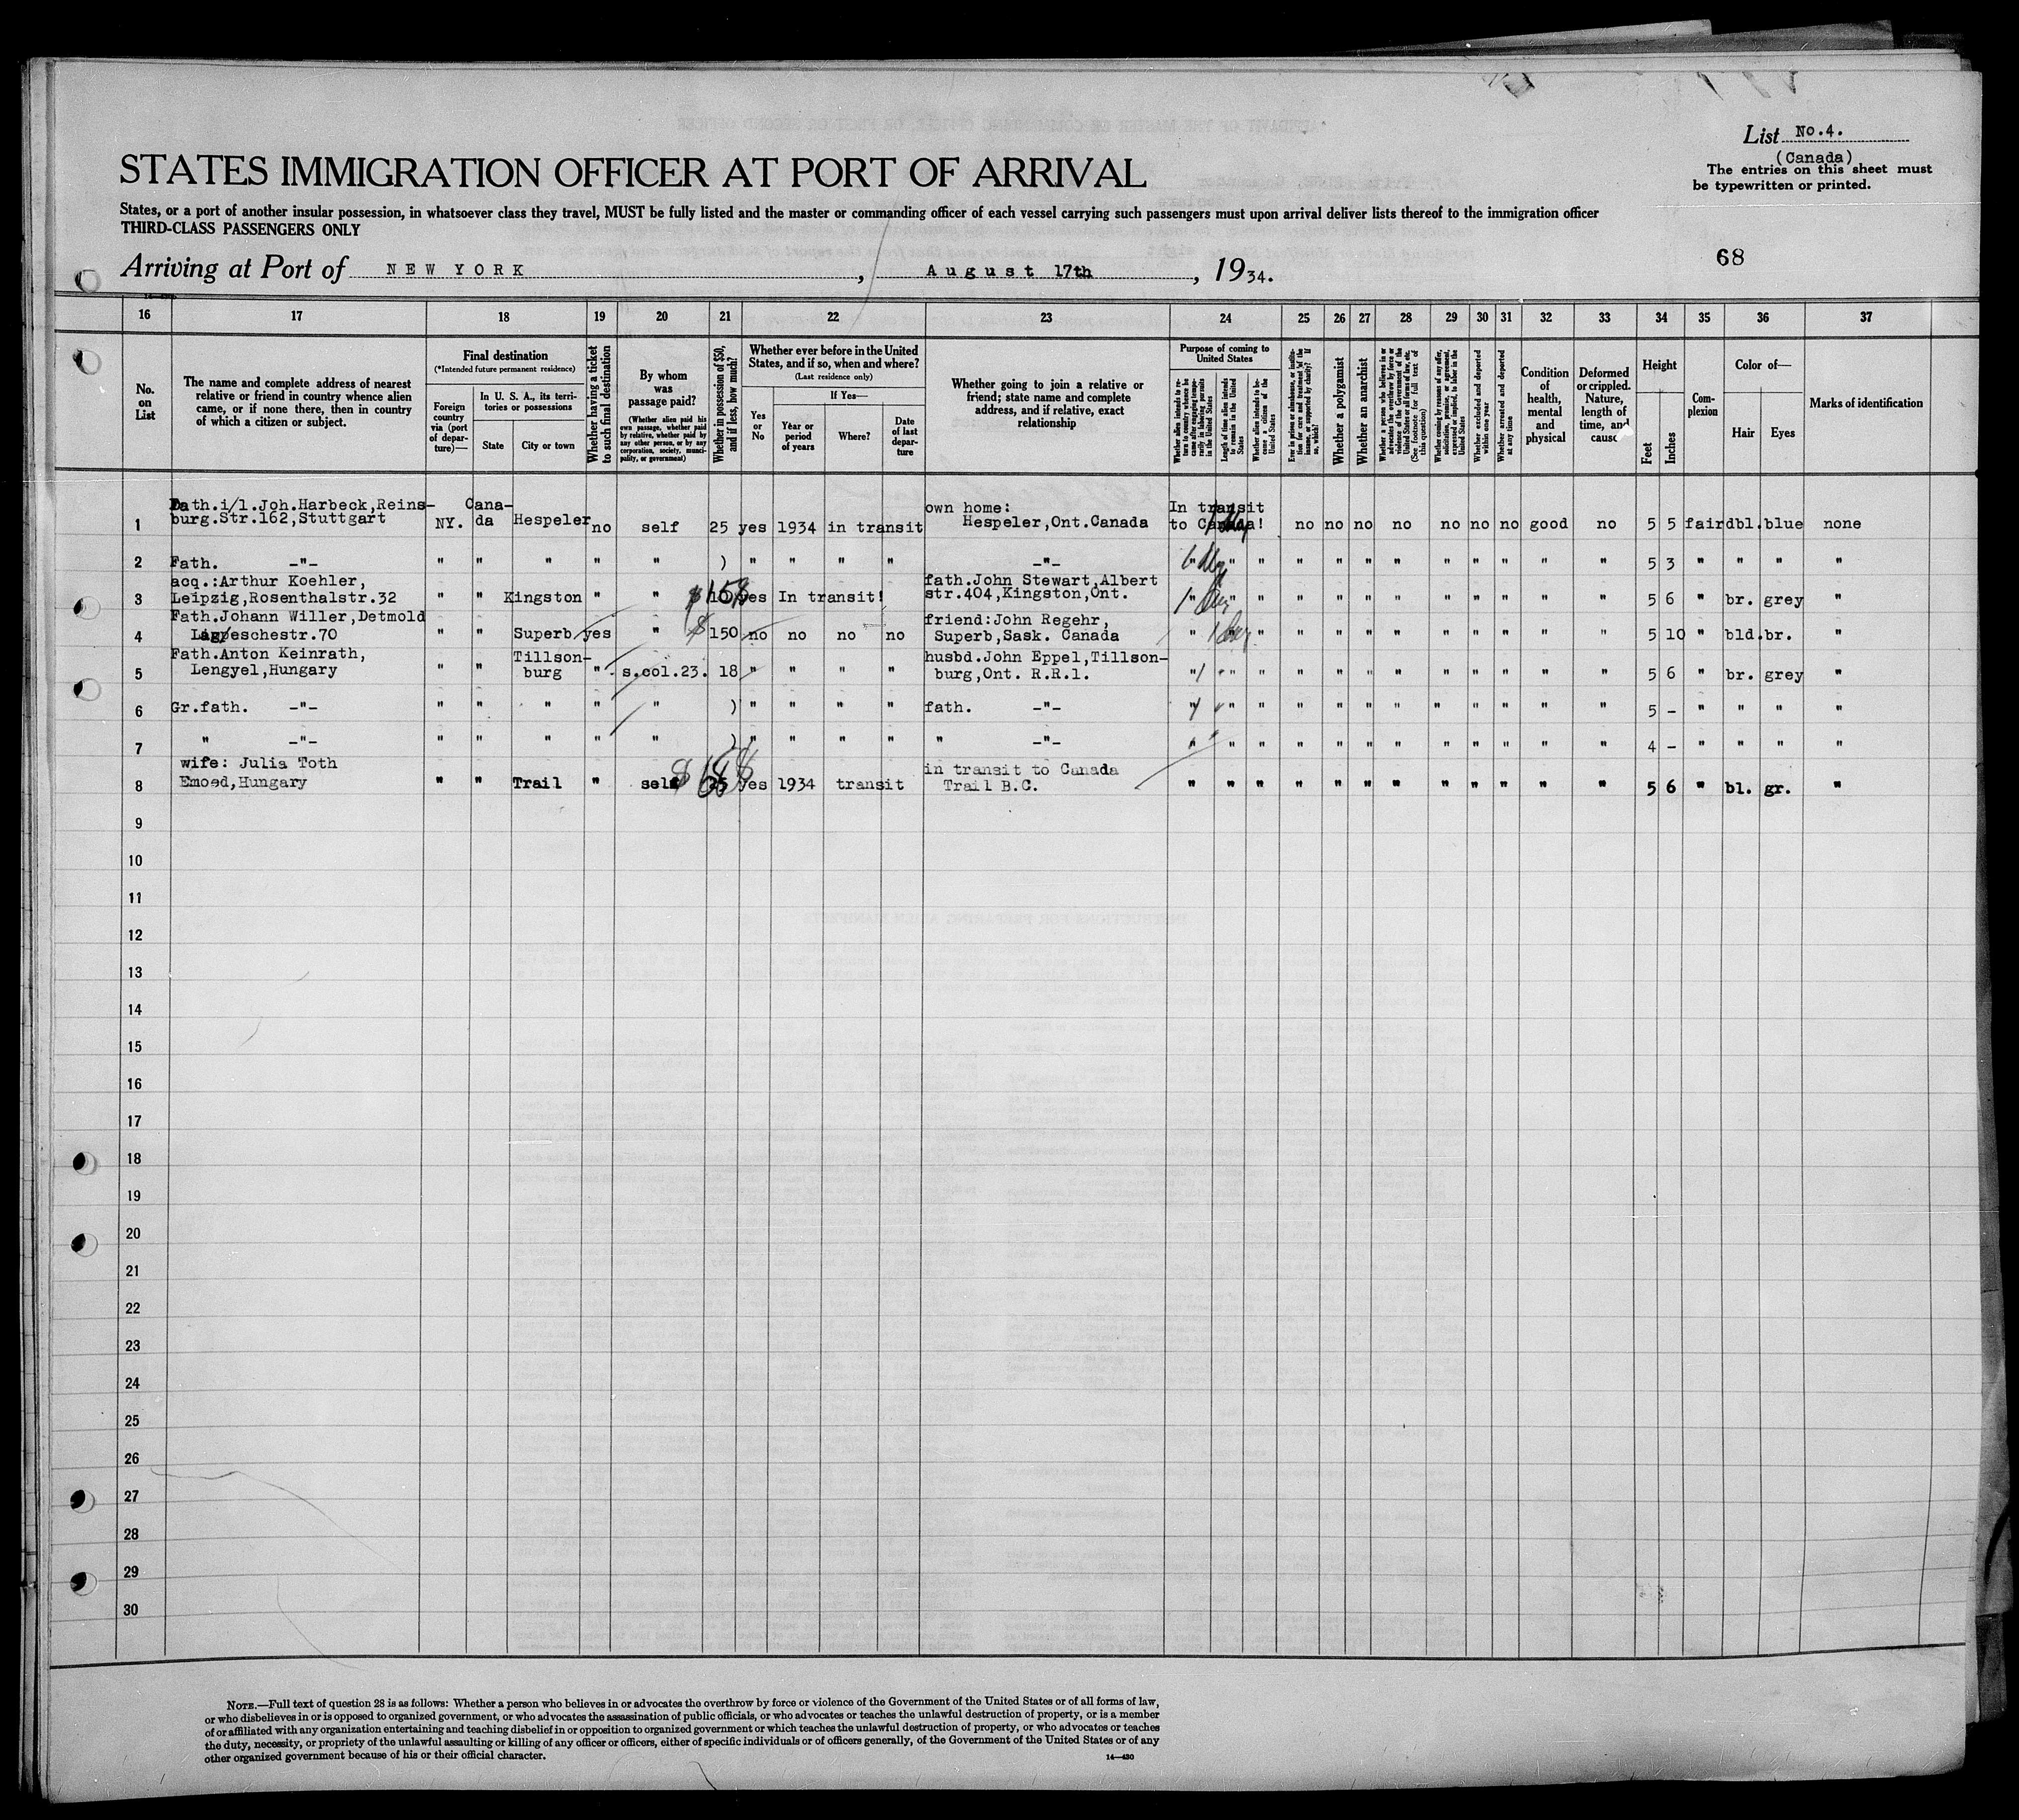 List No.4.
(Canada)
The entries on this sheet must
be typewritten or printed.
STATES IMMIGRATION OFFICER AT PORT OF ARRIVAL
States, or a port of another insular possession, in whatsoever class they travel, MUST be fully listed and the master or commanding officer of each vessel carrying such passengers must upon arrival deliver lists thereof to the immigration officer
THIRD-CLASS PASSENGERS ONLY
68
Arriving at Port of NEW YORK, August 17th, 1934.
16 17 18 19 20 21 22 23 24 25 26 27 28 29 30 31 32 33 34 35 36 37
No. on List
The name and complete address of nearest
relative or friend in country whence alien
came, or if none there, then in country
of which a citizen or subject.
Final destination
(*Intended future permanent residence)
Foreign country via (port of departure)—
In U. S. A., its territories or possessions
State
City or town
Whether having a ticket to such final destination
By whom was passage paid?
(Whether alien paid his own passage, whether paid by relative, whether paid by any other person, or by any corporation, society, municipality, or government)
Whether in possession of $50, and if less, how much?
Whether ever before in the United States, and if so, when and where?
(Last residence only)
Yes or No
If Yes—
Year or period of years
Where?
Date of last departure
Whether going to join a relative or
friend; state name and complete
address, and if relative, exact
relationship
Purpose of coming to United States
Whether alien intends to return to country whence he came after engaging temporarily in laboring pursuits in the United States
Length of time alien intends to remain in the United States
Whether alien intends to become a citizen of the United States
Ever in prison or almshouse, or institution for care and treatment of the insane, or supported by charity? If so, which?
Whether a polygamist
Whether an anarchist
Whether a person who believes in or advocates the overthrow by force or violence of the Government of the United States or all forms of law, etc. (See footnote for full text of this question)
Whether coming by reasons of any offer, solicitation, promise, or agreement, expressed or implied, to labor in the United States
Whether excluded and deported within one year
Whether arrested and deported at any time
Condition of health, mental and physical
Deformed or crippled. Nature, length of time, and cause
Height
Feet
Inches
Complexion
Color of—
Hair
Eyes
Marks of identification
1 Fath.i/l.Joh.Harbeck,Reins-
burg.Str.162,Stuttgart NY. Cana-
da Hespeler no self 25 yes 1934 in transit own home:
Hespeler,Ont.Canada In transit
to Canada! no no no no no no no good no 5 5 fair dbl. blue none
2 Fath. -"- " " " " " ) " " " " -"- " " " " " " " " " " " " " 5 3 " " " "
3 acq.:Arthur Koehler,
Leipzig,Rosenthalstr.32 " " Kingston " " yes In transit! fath.John Stewart,Albert
str.404,Kingston,Ont. " " " " " " " " " " " " " 5 6 " br. grey "
4 Fath.Johann Willer,Detmold
eschestr.70 " " Superb yes " $ 150 no no no no friend:John Regehr,
Superb,Sask. Canada " " " " " " " " " " " " 5 10 " bld. br. "
5 Fath.Anton Keinrath,
Lengyel,Hungary " " Tillson-
burg " s.col.23. 18 " " " " husbd.John Eppel,Tillson-
burg,Ont. R.R.1. " " " " " " " " " " " " 5 6 " br. grey "
6 Gr.fath. -"- " " " " " ) " " " " fath. -"- " " " " " " " " " " " " 5 - " " " "
7 " -"- " " " " " ) " " " " " -"- " " " " " " " " " " " " 4 - " " " "
8 wife: Julia Toth
Emoed,Hungary " " Trail " self yes 1934 transit in transit to Canada
Trail B.C. " " " " " " " " " " " " 5 6 " bl. gr. "
9
10
11
12
13
14
15
16
17
18
19
20
21
22
23
24
25
26
27
28
29
30
NOTE.—Full text of question 28 is as follows: Whether a person who believes in or advocates the overthrow by force or violence of the Government of the United States or of all forms of law,
or who disbelieves in or is opposed to organized government, or who advocates the assassination of public officials, or who advocates or teaches the unlawful destruction of property, or is a member
of or affiliated with any organization entertaining and teaching disbelief in or opposition to organized government or which teaches the unlawful destruction of property, or who advocates or teaches
the duty, necessity, or propriety of the unlawful assaulting or killing of any officer or officers, either of specific individuals or of officers generally, of the Government of the United States or of any
other organized government because of his or their official character.
14—430